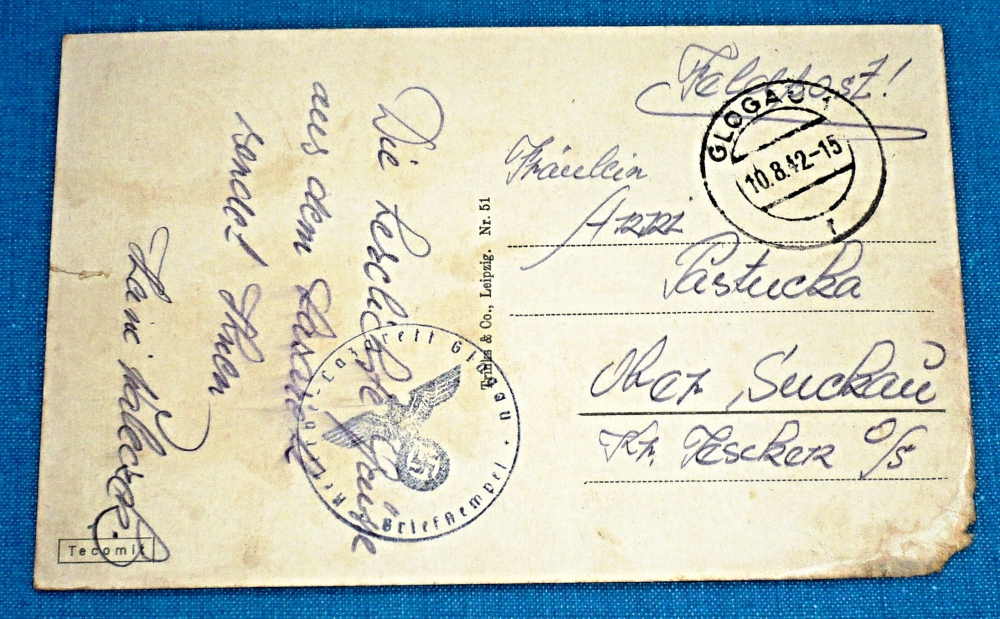 Feldpost!
GLOGAU 1
10.8.42-15
r
Fräulein
Anni
Pastucka
Ober Suckau
Kr. O/S
Die herzlichste Grüße
aus dem Lazarett
sendet Ihnen
Trinks & Co., Leipzig. Nr. 51
Lazarett Glogau
Briefstempel
Tecomit